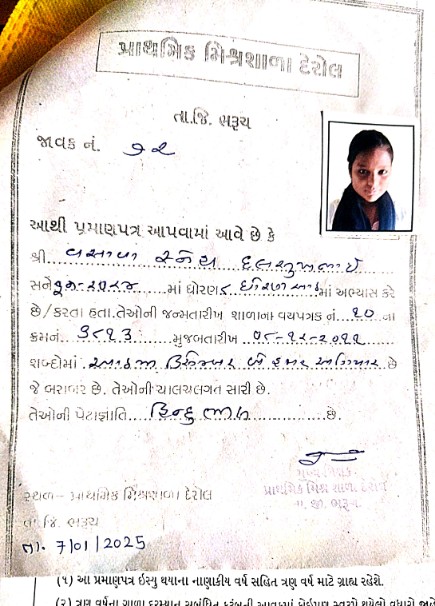 પ્રાથમિક મિશ્રશાળા દેરોલ
તા.જિ. ભરૂચ
જાવક નં. ૭૨
આથી પ્રમાણપત્ર આપવામાં આવે છે કે
શ્રી વસાવા સ્નેહા દલસુખભાઈ
સને ૨૦૨૪ માં ધોરણ ૮ માં અભ્યાસ કરે
છે/કરતા હતા.તેઓની જન્મતારીખ શાળાના વયપત્રક નં. ૧૦ ના
ક્રમનં. ૧૮૧૩ મુજબતારીખ ૦૮-૧૨-૨૦૧૧
શબ્દોમાં આઠમી ડિસેમ્બર બે હજાર અગિયાર છે
જે બરાબર છે. તેઓની ચાલચલગત સારી છે.
તેઓની પેટાજ્ઞાતિ હિન્દુ ભીલ છે.
મુખ્ય શિક્ષક
પ્રાથમિક મિશ્ર શાળા દેરોલ
તા. જી. ભરૂચ
સ્થળ - પ્રાથમિક મિશ્રશાળા દેરોલ
તા. જિ. ભરૂચ
તા. 7/01/2025
(૧) આ પ્રમાણપત્ર ઇસ્યુ થયાના નાણાકીય વર્ષ સહિત ત્રણ વર્ષ માટે ગ્રાહ્ય રહેશે.
(૨) ત્રણ વર્ષના ગાળા દરમ્યાન